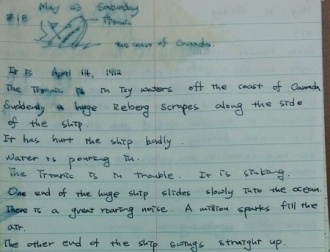 May 23 Saturday
#18
Titanic
the coast of Canada.
It is April 14, 1912
The Titanic is in Icy waters off the coast of Canada
Suddenly a huge Iceberg scrapes along the side
of the ship.
It has hurt the ship badly.
Water is pouring in.
The Titanic is in trouble. It is sinking.
One end of the huge ship slides slowly into the ocean.
There is a great roaring noise. A million sparks fill the
air.
The other end of the ship swings straight up.